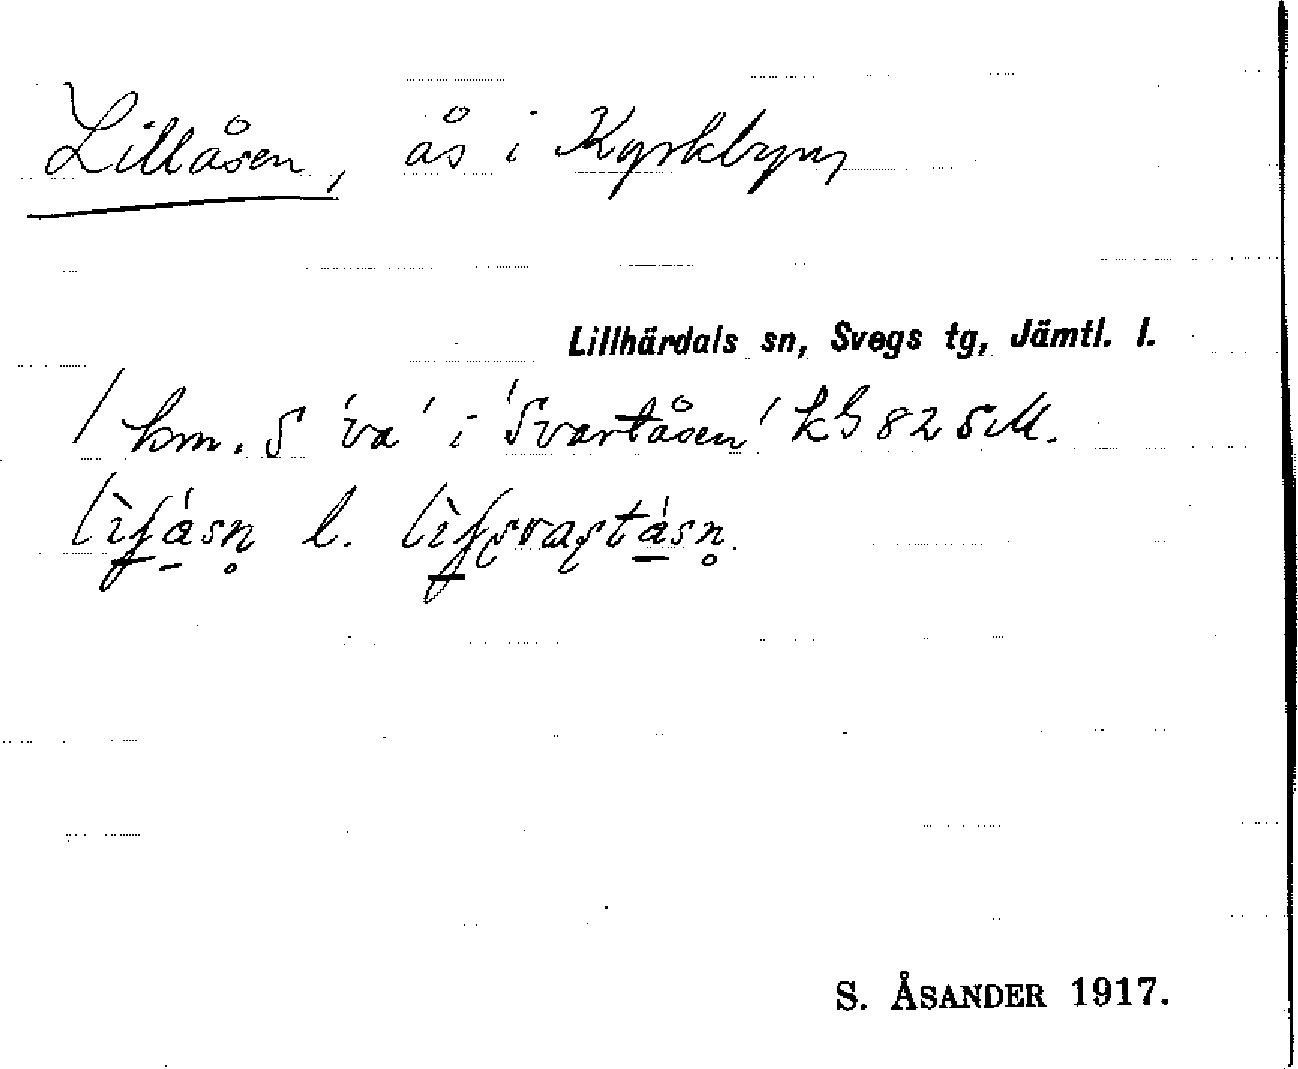 Lillåsen, ås i Kyrkbyn,
Lillhärdals sn, Svegs tg, Jämtl. l.
1 km. S 'va' i 'Svartåsen' kb 82 5 M.
l. 
S. ÅSANDER 1917.